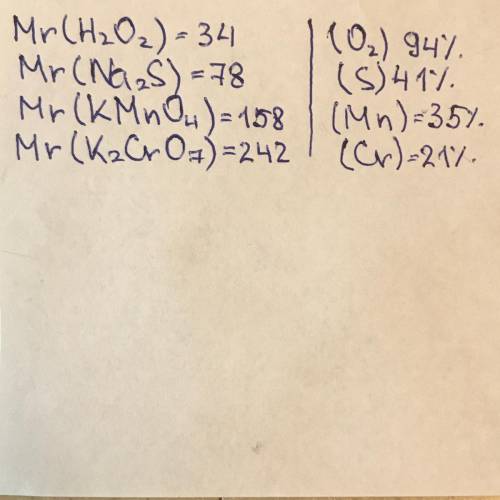 Mr(H₂O₂) = 34
Mr(Na₂S) = 78
Mr(KMnO₄) = 158
Mr(K₂CrO₇) = 242
(O₂) 94%.
(S) 41%.
(Mn) = 35%.
(Cr) = 21%.